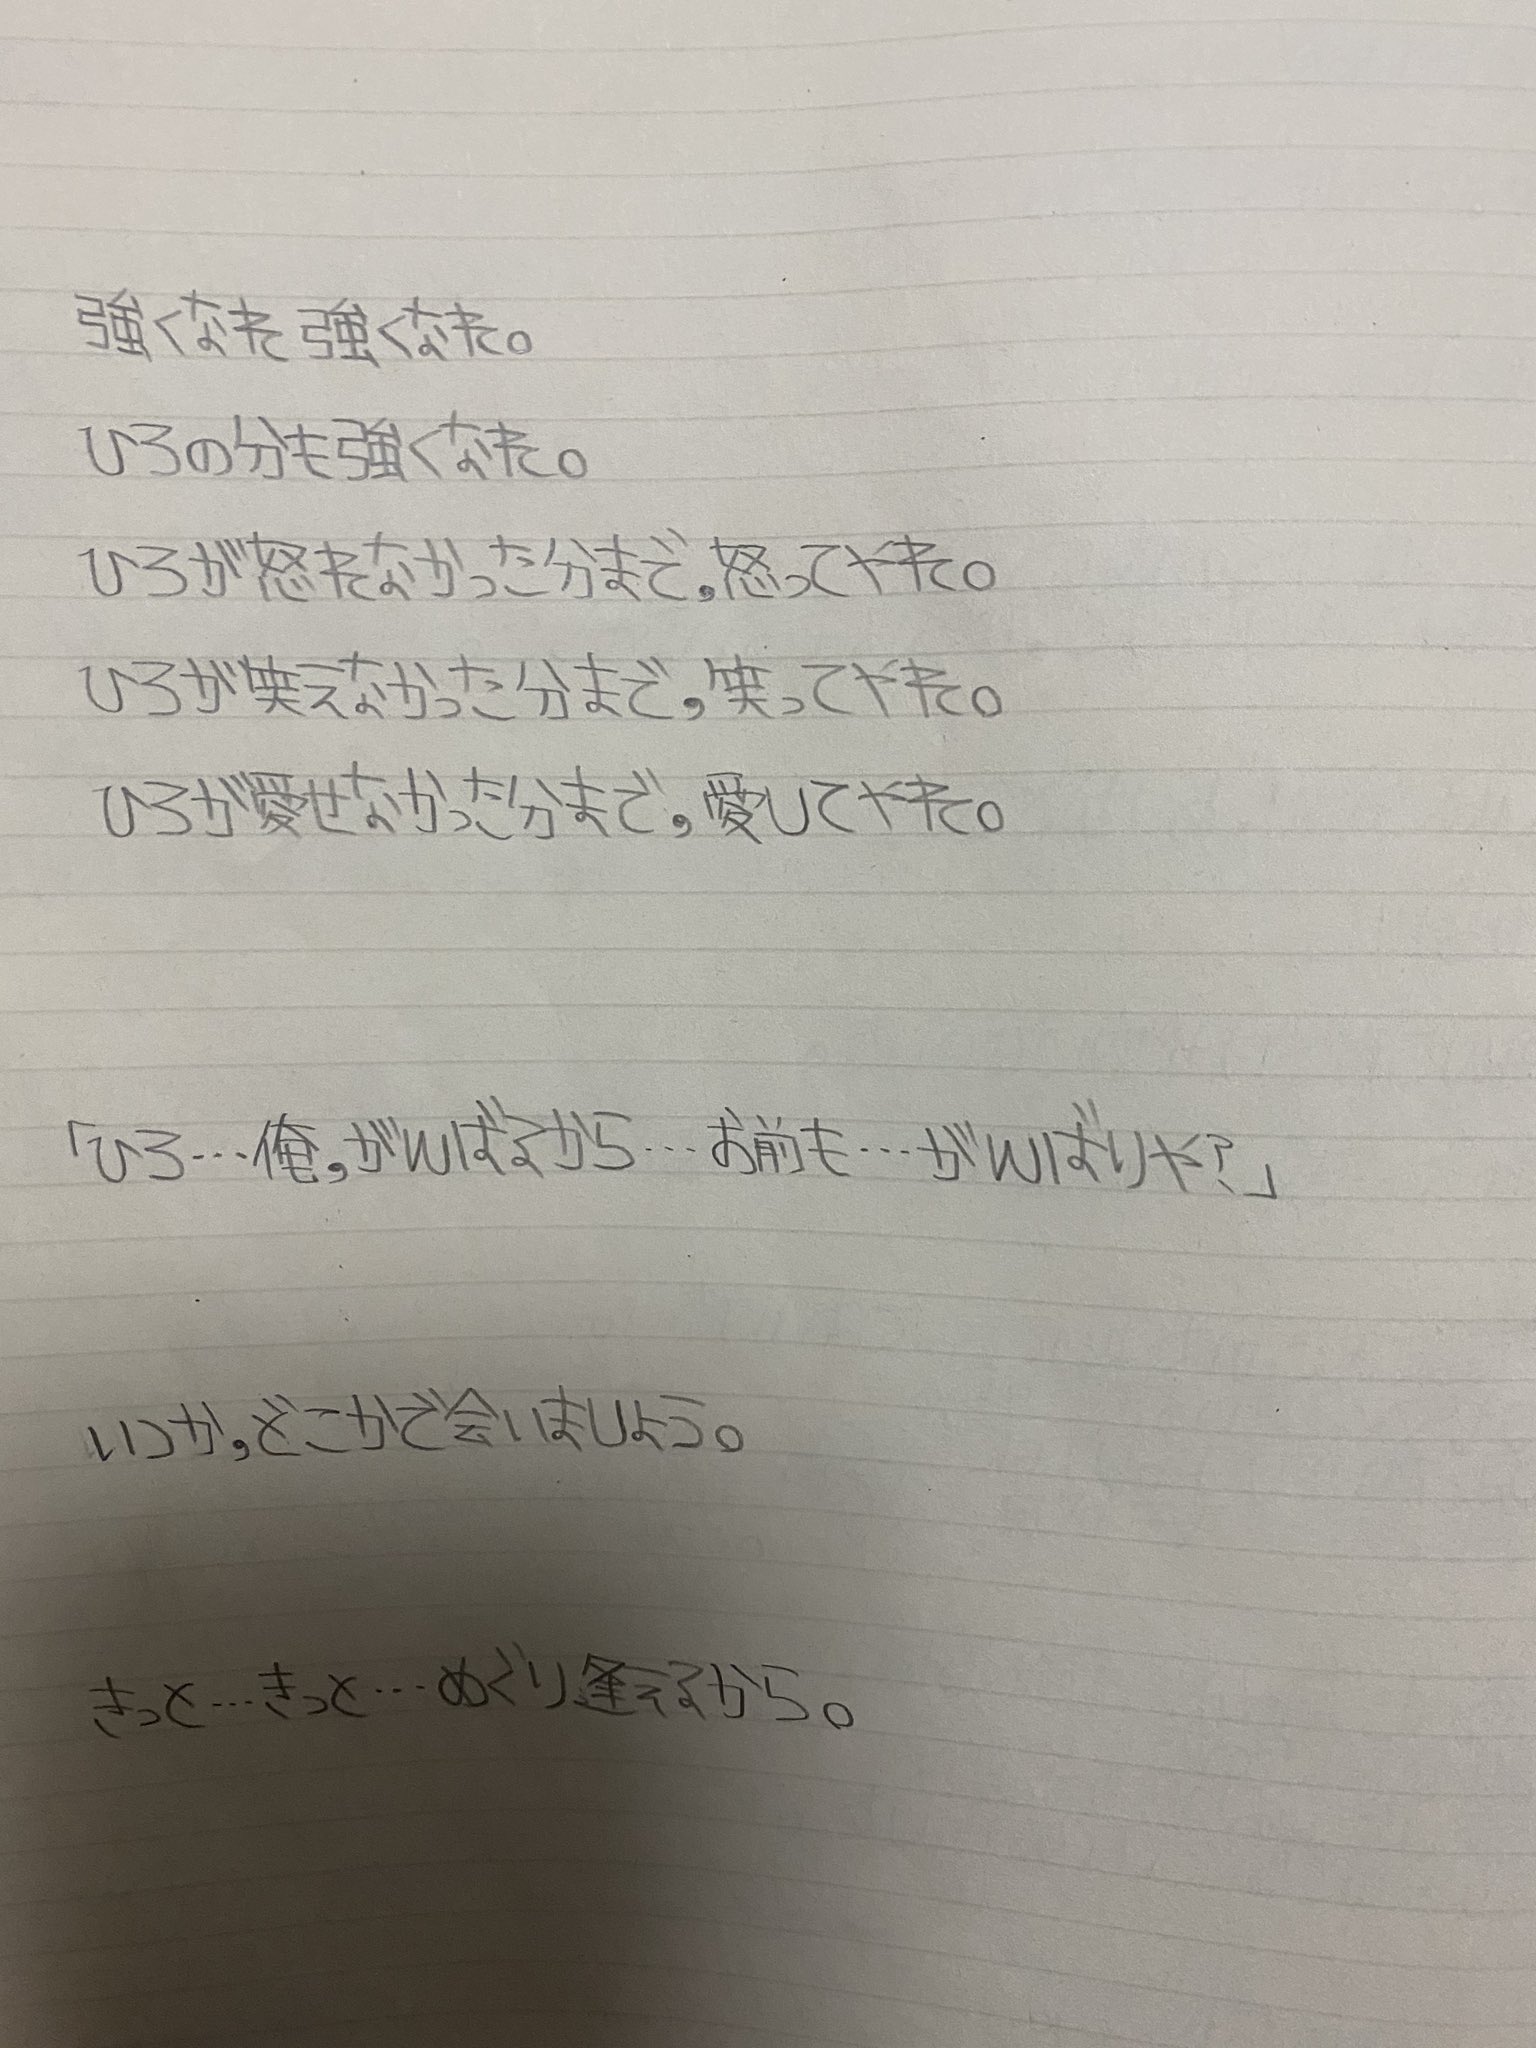 強くなれ 強くなれ。
ひろの分も強くなれ。
ひろが怒れなかった分まで,怒ってやれ。
ひろが笑えなかった分まで,笑ってやれ。
ひろが愛せなかった分まで,愛してやれ。
「ひろ…俺,がんばるから…お前も…がんばりや?」
いつか,どこかで会いましょう。
きっと…きっと…めぐり逢えるから。